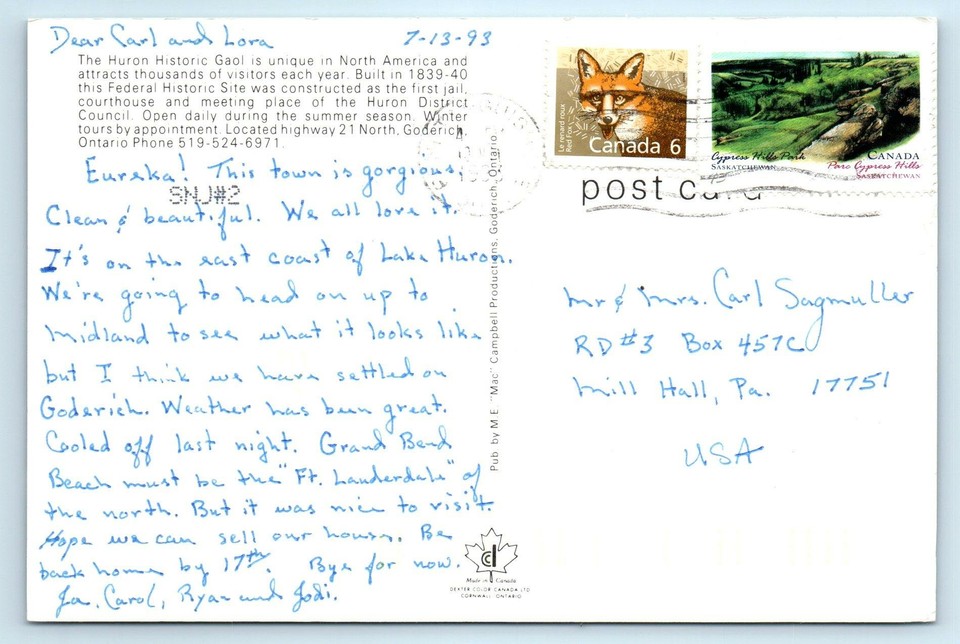 Dear Carl and Lora 7-13-93
The Huron Historic Gaol is unique in North America and
attracts thousands of visitors each year. Built in 1839-40
this Federal Historic Site was constructed as the first jail,
courthouse and meeting place of the Huron District
Council. Open daily during the summer season. Winter
tours by appointment. Located highway 21 North, Goderich,
Ontario Phone 519-524-6971.
Eureka! This town is gorgious.
SNJ#2
Clean & beautiful. We all love it.
It's on the east coast of Lake Huron.
We're going to head on up to
Midland to see what it looks like
but I think we have settled on
Goderich. Weather has been great.
Cooled off last night. Grand Bend
Beach must be the "Ft. Lauderdale" of
the north. But it was nice to visit.
Hope we can sell our house. Be
back home by 17th. Bye for now.
Jo, Carol, Ryan and Jodi.
Pub. by M.E. "Mac" Campbell Productions, Goderich, Ontario
Made in Canada
DEXTER COLOR CANADA LTD
CORNWALL, ONTARIO
Le renard roux
Red Fox
Canada 6
Cypress Hills Park
SASKATCHEWAN
CANADA
Parc Cypress Hills
SASKATCHEWAN
post card
Mr & Mrs. Carl Sagmuller
RD #3 Box 457C
Mill Hall, Pa. 17751
USA